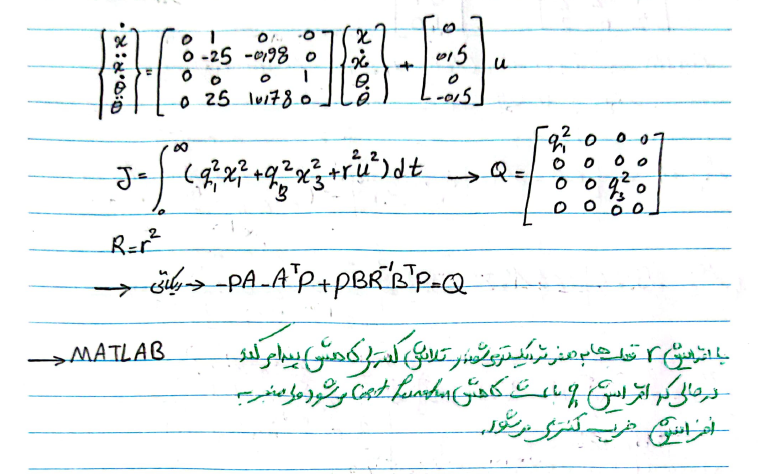 {ẋ ẍ θ̇ θ̈} = [0 1 0 0; 0 -25 -0,98 0; 0 0 0 1; 0 25 10,78 0] {x ẋ θ θ̇} + [0; 0,5; 0; -0,5] u
J = ∫₀^∞ (q₁² x₁² + q₃² x₃² + r² u²) dt → Q = [q₁² 0 0 0; 0 0 0 0; 0 0 q₃² 0; 0 0 0 0]
R = r²
→ ریکاتی → -PA - AᵀP + PBR⁻¹BᵀP = Q
→ MATLAB با افزایش r قطب ها به صفر نزدیکتر می شوند تلاش کنترلی کاهش پیدا می کند
در حالی که افزایش q باعث کاهش Cost Function می شود و منجر به
افزایش ضریب کنترلی می شود.